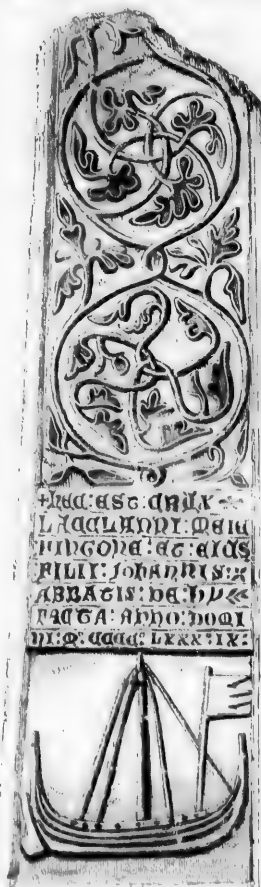 + HEC : EST : CRUX
LACCLANNI : MEIC
FINGONE : ET : EIUS
FILII : JOHANNIS :
ABBATIS : DE : HY
FACTA : ANNO : DOMI
NI : M : CCCC : LXXX : IX :